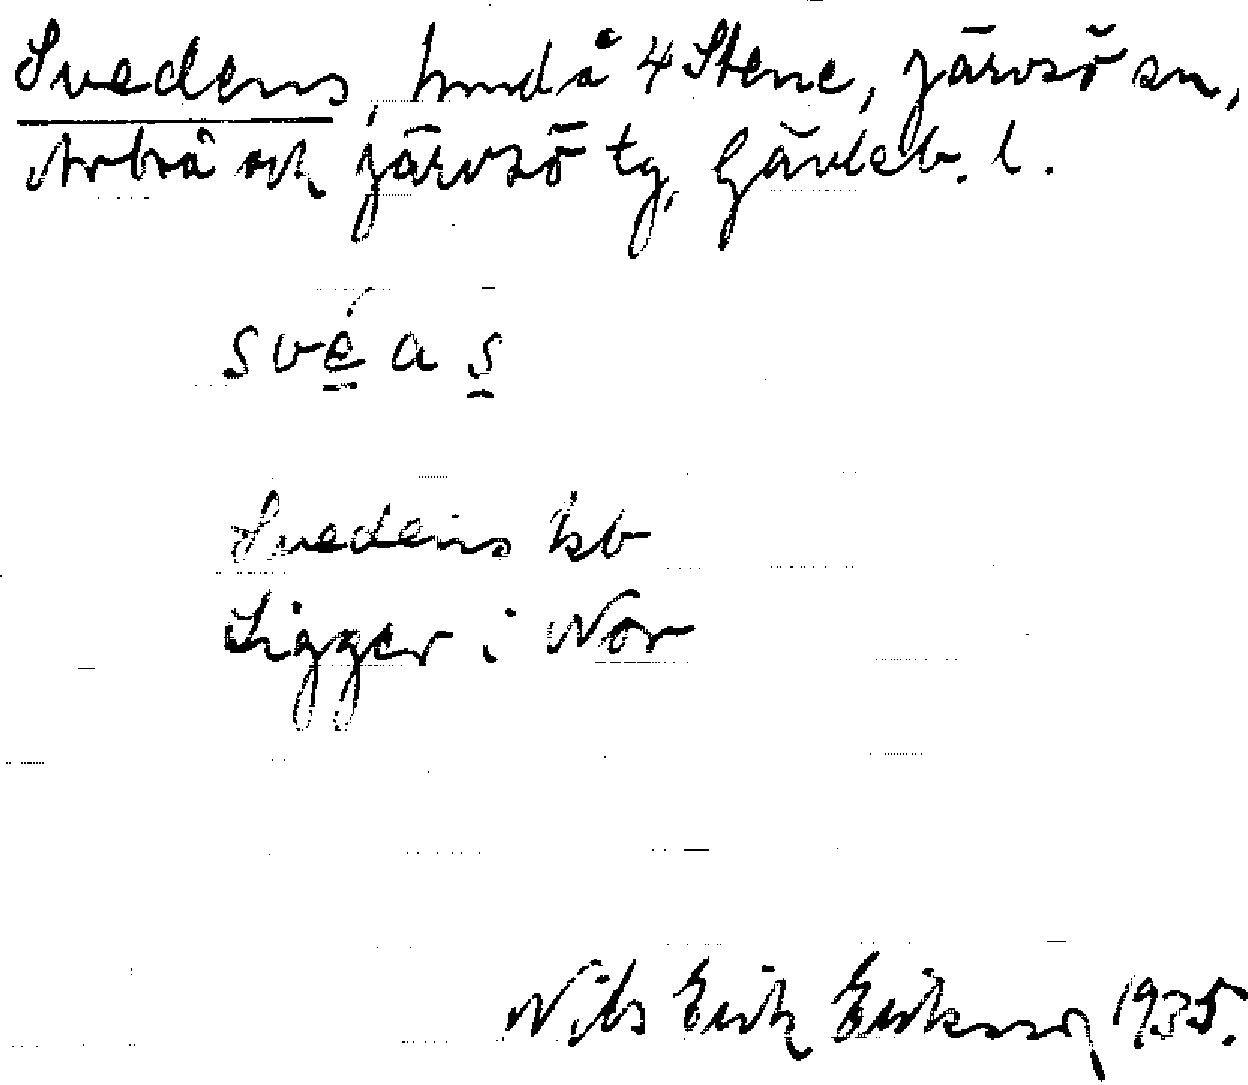 Svedens, hmd å 4 Stene, Järvsö sn,
Arbrå och Järvsö tg, Gävleb. l.
svéas
Svedens kb
Ligger i Nor
Nils Erik Eriksson 1935.